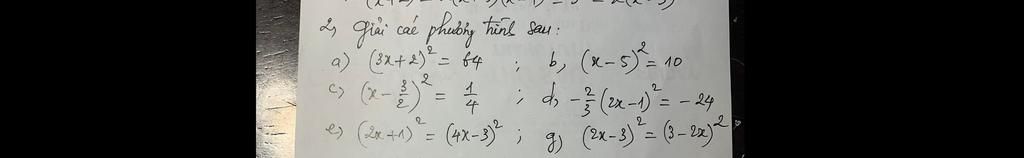 2, Giải các phương trình sau:
a) (3x+2)² = 64 ; b, (x-5)² = 10
c, (x - 3/2)² = 1/4 ; d, -2/3 (2x-1)² = -24
e, (2x+1)² = (4x-3)² ; g) (2x-3)² = (3-2x)²